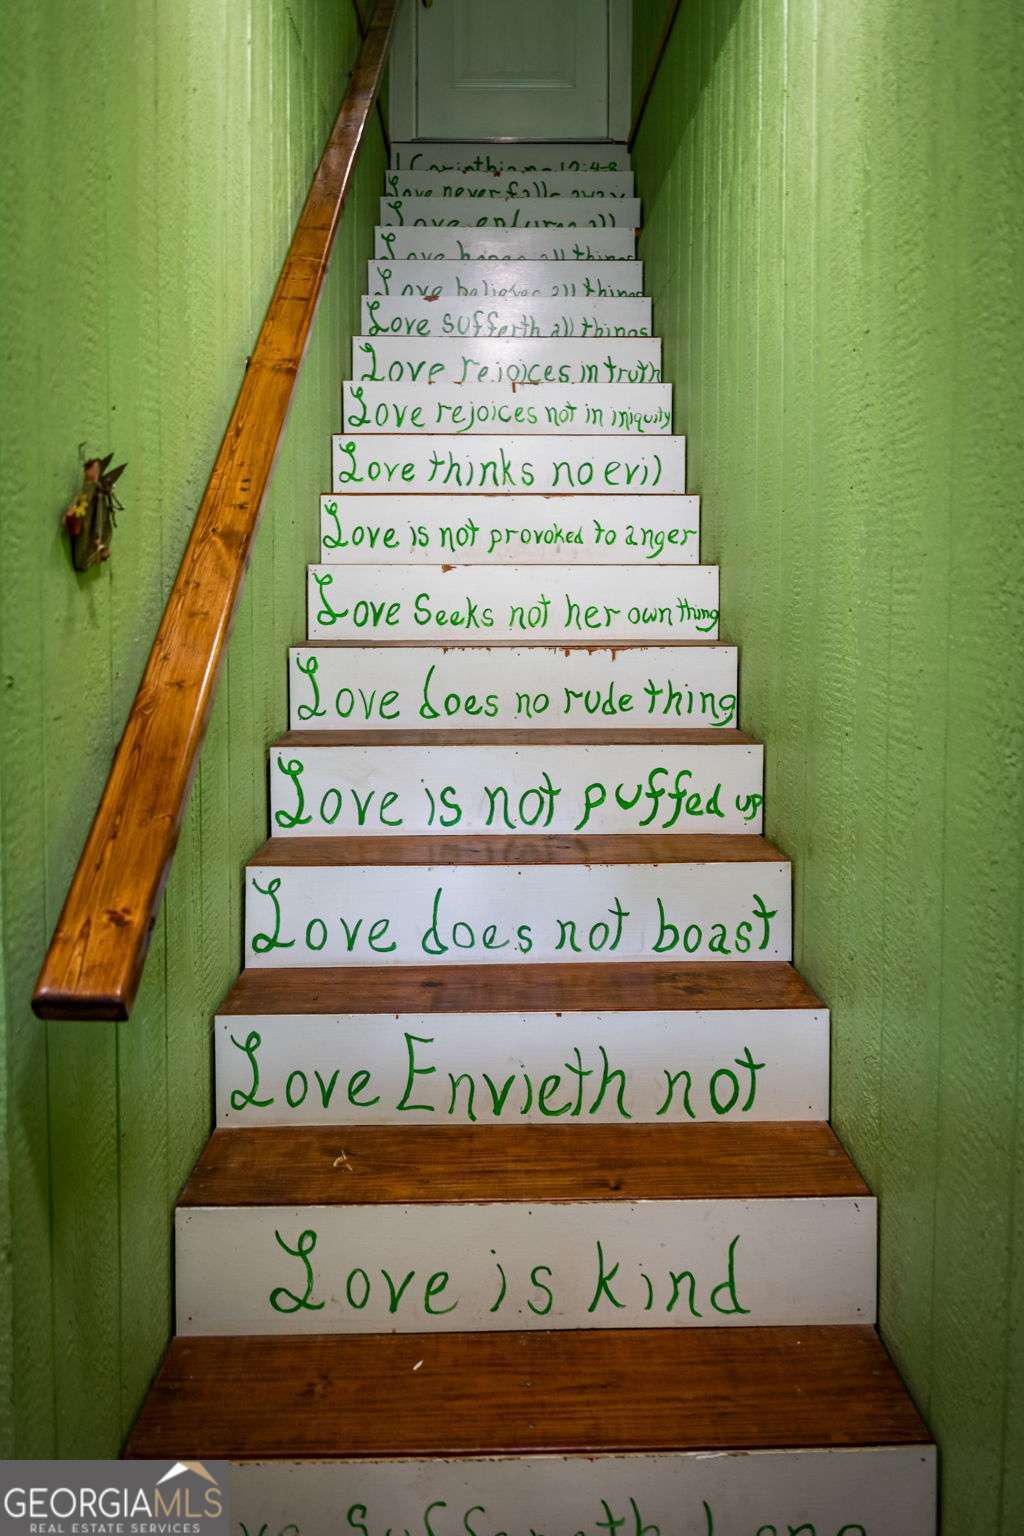 1 Corinthians
Love never fails away
Love endures all
Love hopes all things
Love believes all things
Love sufferth all things
Love rejoices in truth
Love rejoices not in iniquity
Love thinks no evil
Love is not provoked to anger
Love Seeks not her own thing
Love does no rude thing
Love is not puffed up
Love does not boast
Love Envieth not
Love is kind
GEORGIAMLS
REAL ESTATE SERVICES